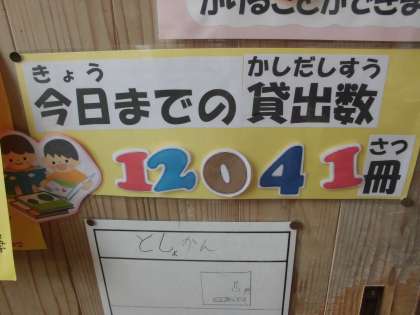 かけることができま
きょう かしだしすう
今日までの貸出数
さつ
12041冊
としょかん